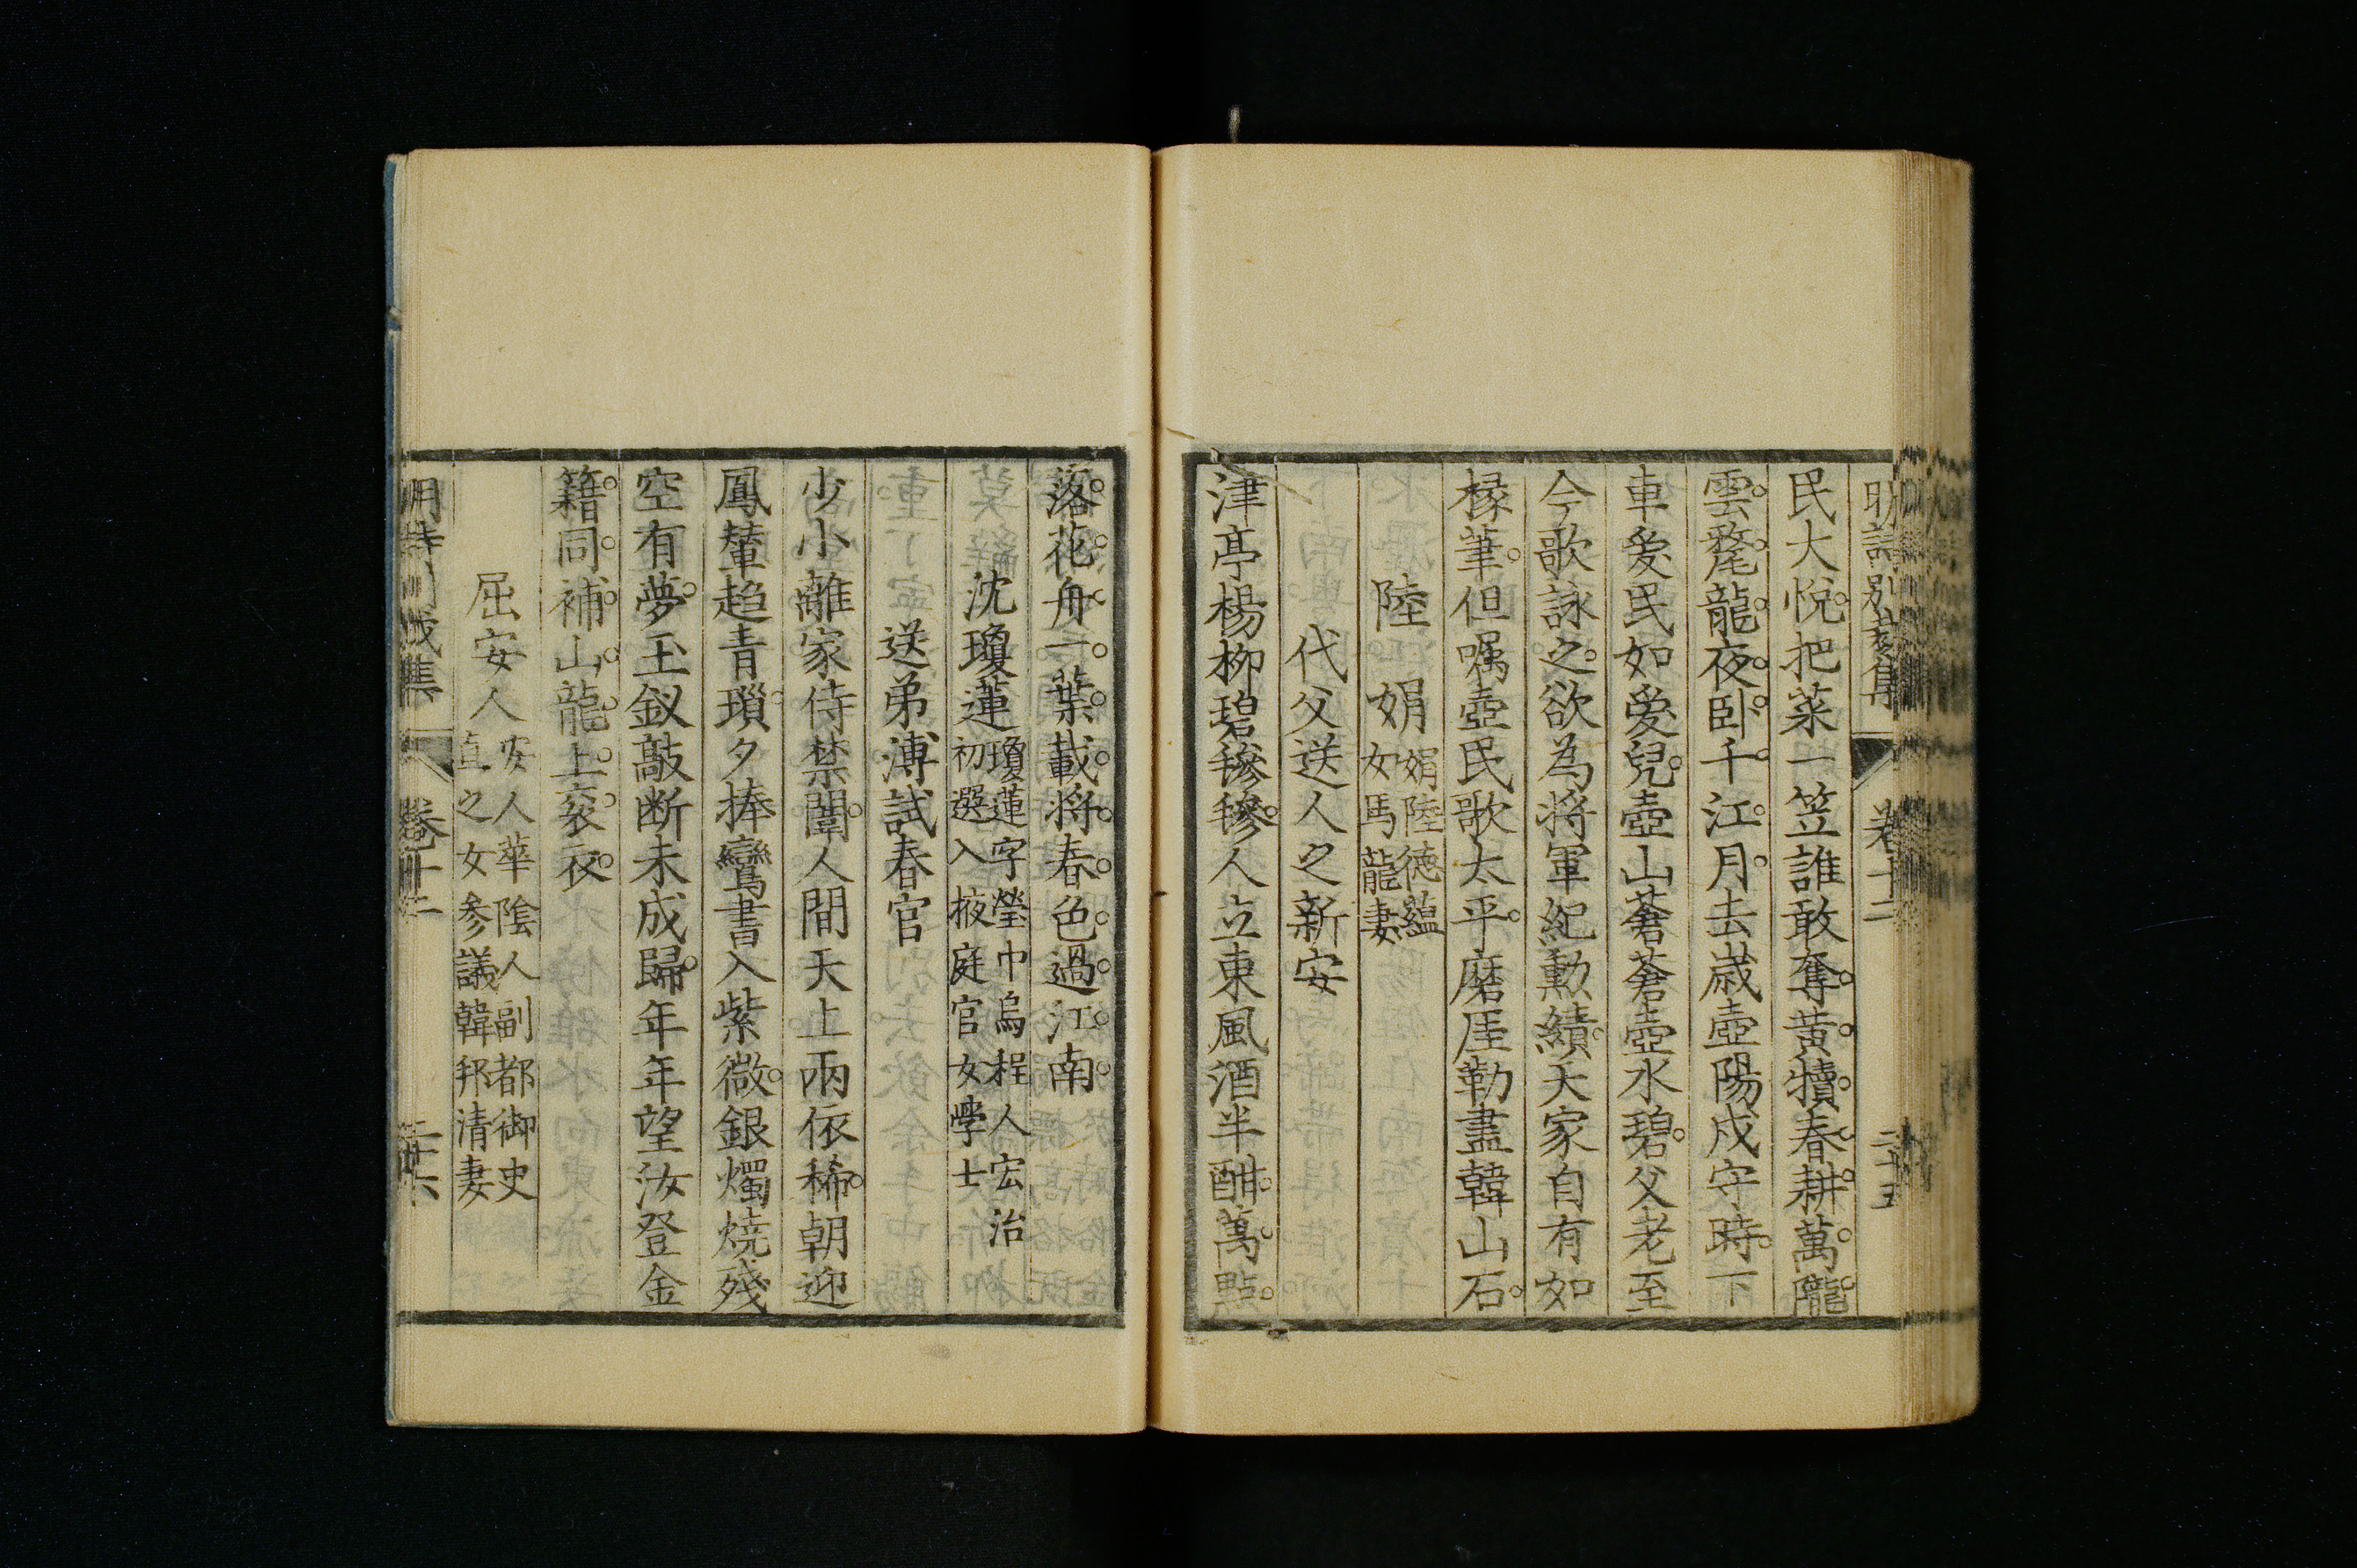 明詩別裁集 卷十二 二十五
民大悅把菜一笠誰敢奪黃犢春耕萬隴
雲氂龍夜臥千江月去歲壺陽戍守時下
車爱民如愛兒壺山蒼蒼壺水碧父老至
今歌詠之欲為將軍紀勳績天家自有如
椽筆但嘱壺民歌太平磨厓勒盡韓山石
陸娟
娟陸德蘊
女馬龍妻
代父送人之新安
津亭楊柳碧毿毿人立東風酒半酣萬點
落花舟一葉載將春色過江南
沈瓊蓮
瓊蓮字瑩中烏程人宏治
初選入掖庭官女學士
送弟溥試春官
少小離家侍禁闈人間天上兩依稀朝迎
鳳輦趋青瑣夕捧鸞書入紫微銀燭燒殘
空有夢玉釵敲断未成歸年年望汝登金
籍同補山龍上衮衣
屈安人
安人華陰人副都御史
直之女參議韓邦清妻
明詩別裁集 卷十二 二十六